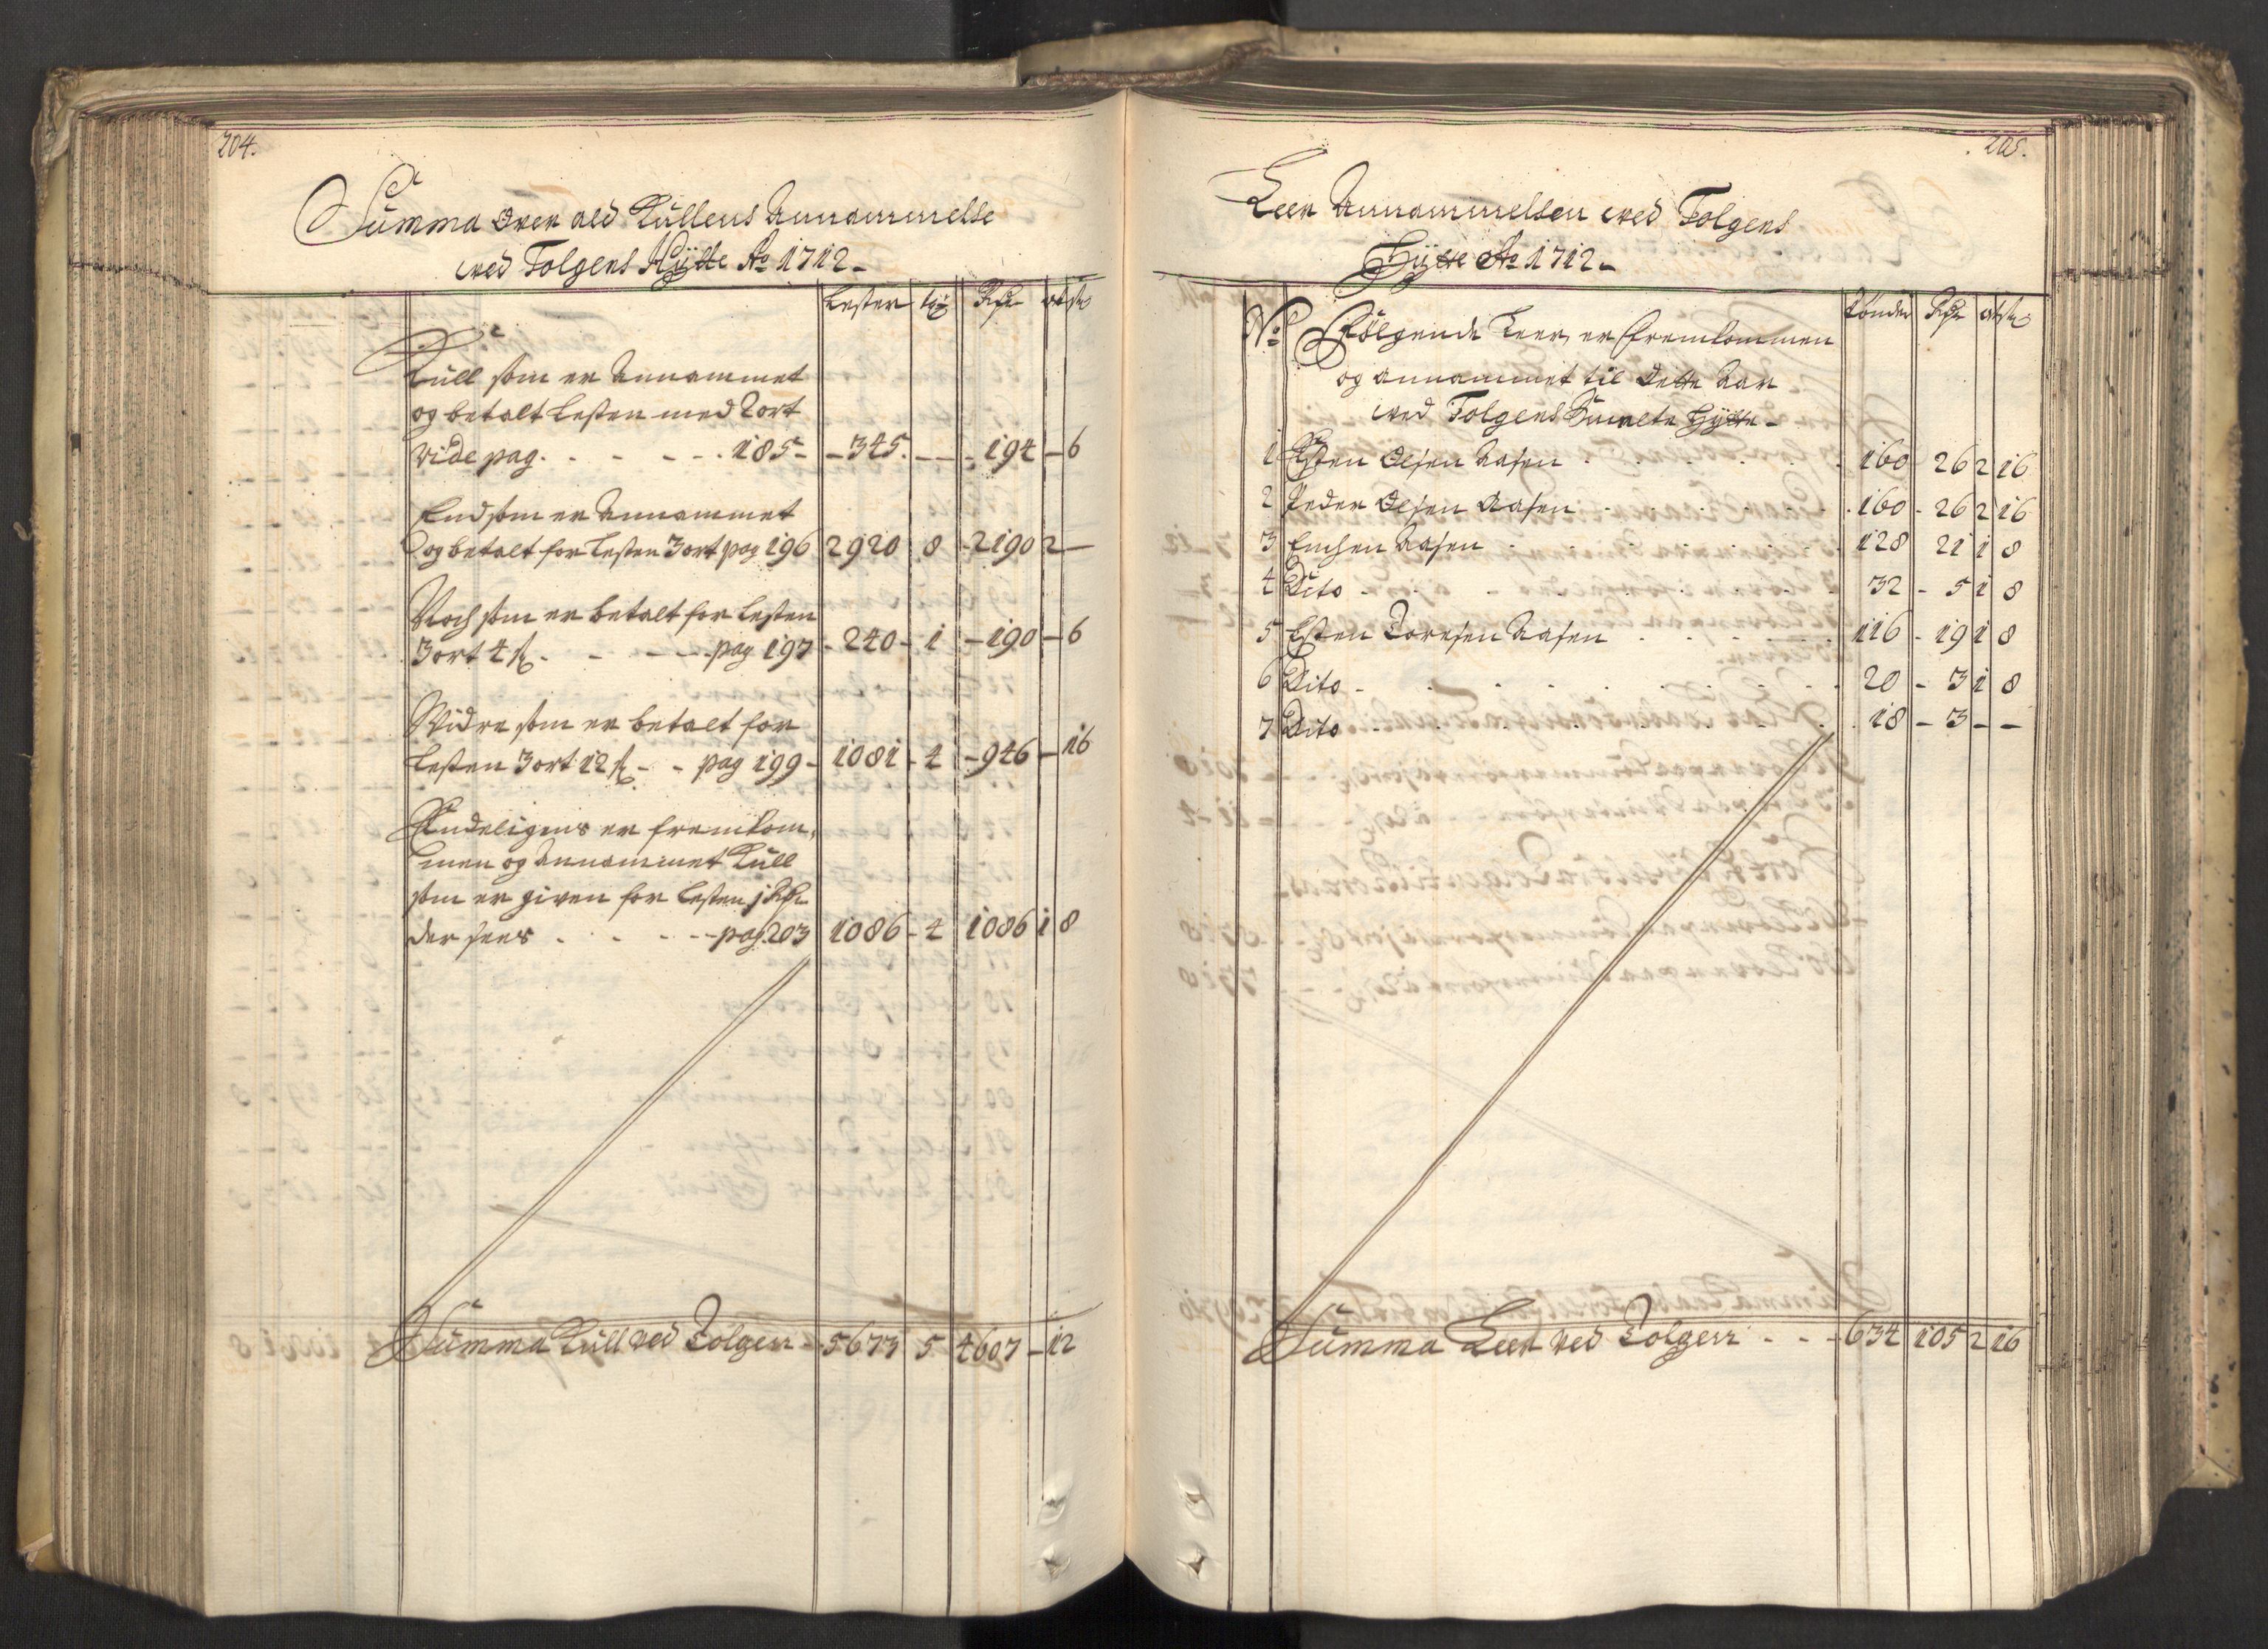 204.
Summa over ald Kullens Annammelse
ved Tolgens Hÿtte Ao 1712 -
Lester Rdr ort
Kull som er Annammet
og betalt Lesten med 2 ort
vide pag. - - - - 185 - - 345. - - 194 - 6
End som er Annammet
og betalt for Lesten 3 ort pag 196 2920 8 - 2190 2 -
Noch som er betalt for Lesten
3 ort 4 s - - - - pag 197 - 240 - 1 - 190 - 6
Widre som er betalt for
Lesten 3 ort 12 s - - pag 199 - 1081 - 4 - 946 - 16
Endeligens er fremkom-
men og Annammet Kull
som er given for Lesten j Rdr
der sees - - - - pag. 203 1086 - 4 1086 1 8
Summa Kull ved Tolgen - 5673 5 4607 - 12
205.
Leer Annammelsen ved Tolgens
Hÿtte Ao 1712 -
No Fölgende Leer er fremkommen Tönder Rdr ort
og annammet til dette Aar
ved Tolgens Smelte Hÿtte -
1 Esten Olsen Aasen 160 26 2 16
2 Peder Olsen Aasen 160 - 26 2 16
3 Aasen 128 21 1 8
4 Dito - 32 - 5 1 8
5 Esten Toresen Aasen 116 - 19 1 8
6 Dito - 20 - 3 1 8
7 Dito 18 - 3 - -
Summa Leer ved Tolgen - - - 634 105 2 16